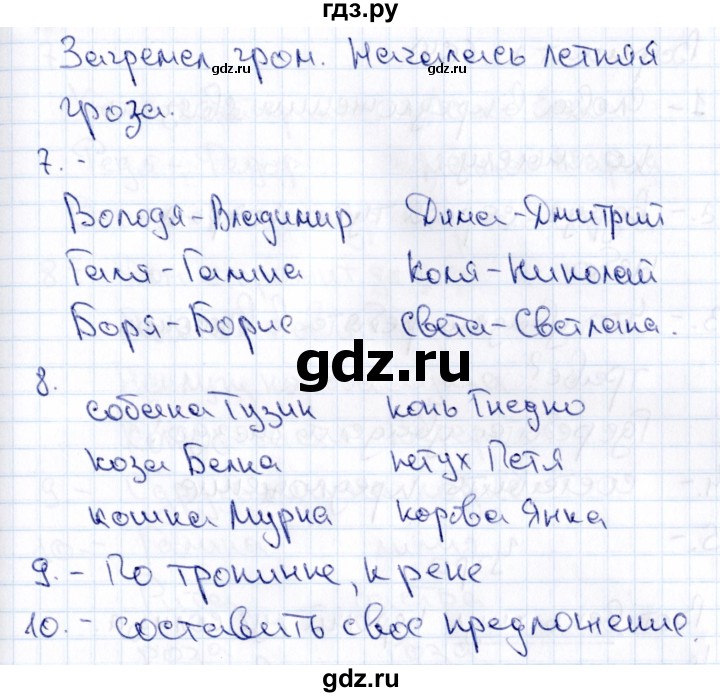 гдз.ру
Загремел гром. Началась летняя
гроза.
7. -
Володя-Владимир Дима-Дмитрий
Галя-Галина Коля-Николай
Боря-Борис Света-Светлана.
gdz.ru
8.
собака Тузик конь Гнедко
коза Белка петух Петя
кошка Мурка корова Янка
9. - По тропинке, к реке
10. - составить свое предложение.
gdz.ru